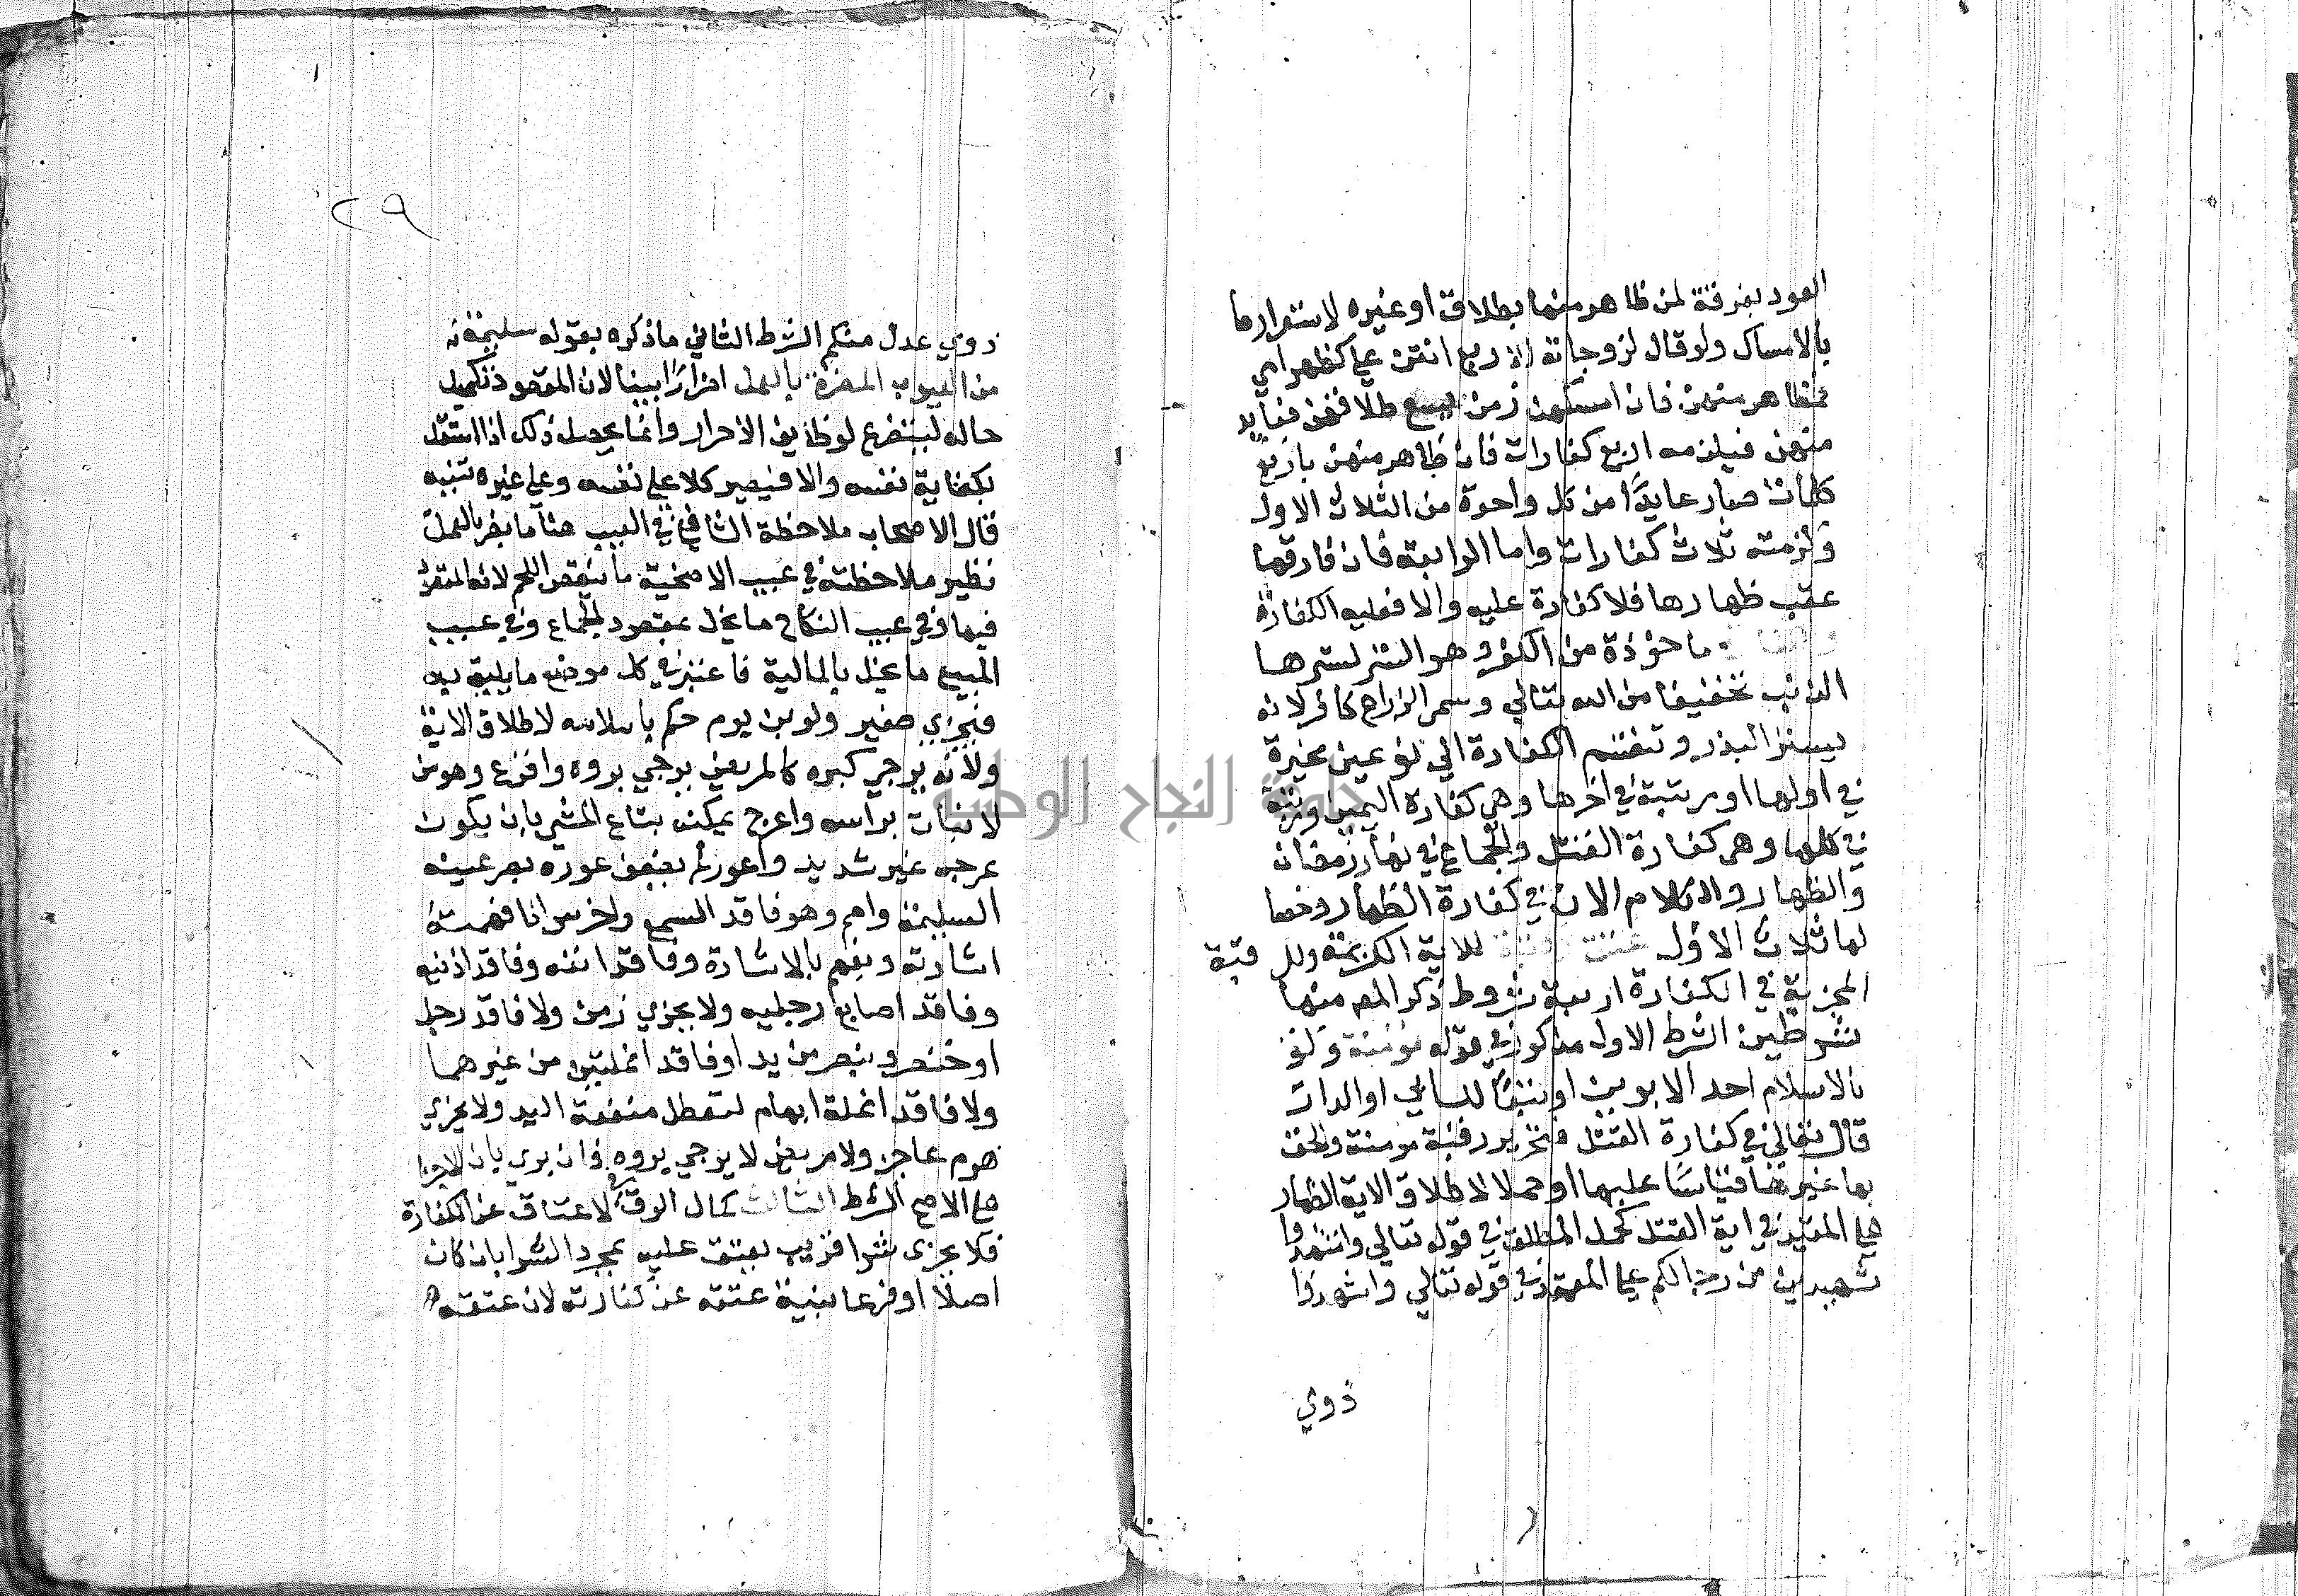 العود بفرقة لمن ظاهر منها بطلاق او غيره لاستقرارها
بالامساك ولو قال لزوجاته الاربع انتن علي كظهر امي
فمظاهر منهن فان امسكهن زمن يسع طلاقهن فعايد
منهن فيلزمه اربع كفارات فان ظاهر منهن باربع
كلمات صار عايدًا من كل واحدة من الثلاث الاول
ولزمته ثلاث كفارات واما الرابعة فان فارقها
عقب ظهارها فلا كفارة عليه والا فعليه الكفارة
ماخوذة من الكفر وهو الستر لسترها
الذنب تخفيفا من الله تعالي وسمي الزراع كافر لانه
يستر البذر وتنقسم الكفارة الي نوعين مخيرة
في اولها ومرتبة في اخرها وهي كفارة اليمين ومرتبة
في كلها وهي كفارة القتل والجماع في نهار رمضان
والظهار والكلام الان في كفارة الظهار وخصا
لها ثلاث الاول عتق رقبة للاية الكريمة وللرقبة
المجزية في الكفارة اربعة شروط ذكر المص منها
شرطين الشرط الاول مذكور في قوله مؤمنة ولو
بالاسلام احد الابوين او تبعًا للسابي او الدار
قال تعالي في كفارة القتل فتحرير رقبة مومنة والحق
بها غيرها قياسًا عليها او حملا لاطلاق الاية الظهار
علي المقيد في اية القتل كحمل المطلق في قوله تعالي واشهدوا
شهيدين من رجالكم علي المقيد في قوله تعالي واشهدوا
ذوي
٢٩
ذوي عدل منكم الشرط الثاني ما ذكره بقوله سليمة
من العيوب المضرة بالعمل اضرارًا بينا لان المقصود تكميل
حاله ليتفرغ لوظايف الاحرار وانما يحصل ذلك اذا استقل
بكفاية نفسه والا فيصير كلا علي نفسه وعلي غيره تنبيه
قال الاصحاب ملاحظة الشافعي في العيب هنا ما يضر بالعمل
نظير ملاحظته في عيب الاضحية ما ينقص اللحم لانه المقصود
فيها وفي عيب النكاح ما يخل بمقصود الجماع وفي عيب
المبيع ما يخل بالمالية فاعتبر في كل موضع ما يليق به
فيجزي صغير ولو بن يوم حكم باسلامه لاطلاق الاية
ولانه يرجي كبره كالمريض يرجي بروه واقرع وهو من
لا نبات براسه واعرج يمكنه تباع المشي بان يكون
عرجه غير شديد واعور لم يضعف عوره بصر عينه
السليمة واصم وهو فاقد السمع واخرس اذا فهمت
اشارته ويفهم بالاشارة وفاقد انفه وفاقد اذنيه
وفاقد اصابع رجليه ولا يجزي زمن ولا فاقد رجل
او خنصر وبنصر من يد او فاقد انملتين من غيرهما
ولا فاقد انملة ابهام لتعطل منفعة اليد ولا يجزي
هرم عاجز ولا مريض لا يرجي بروه فان بري بان الاجزا
علي الاصح الشرط الثالث كمال الرق لاعتاق عن الكفارة
فلا يجزي شرا قريب يعتق عليه بمجرد الشرا بان كان
اصلًا او فرعا بنية عتقه عن كفارته لان عتقه